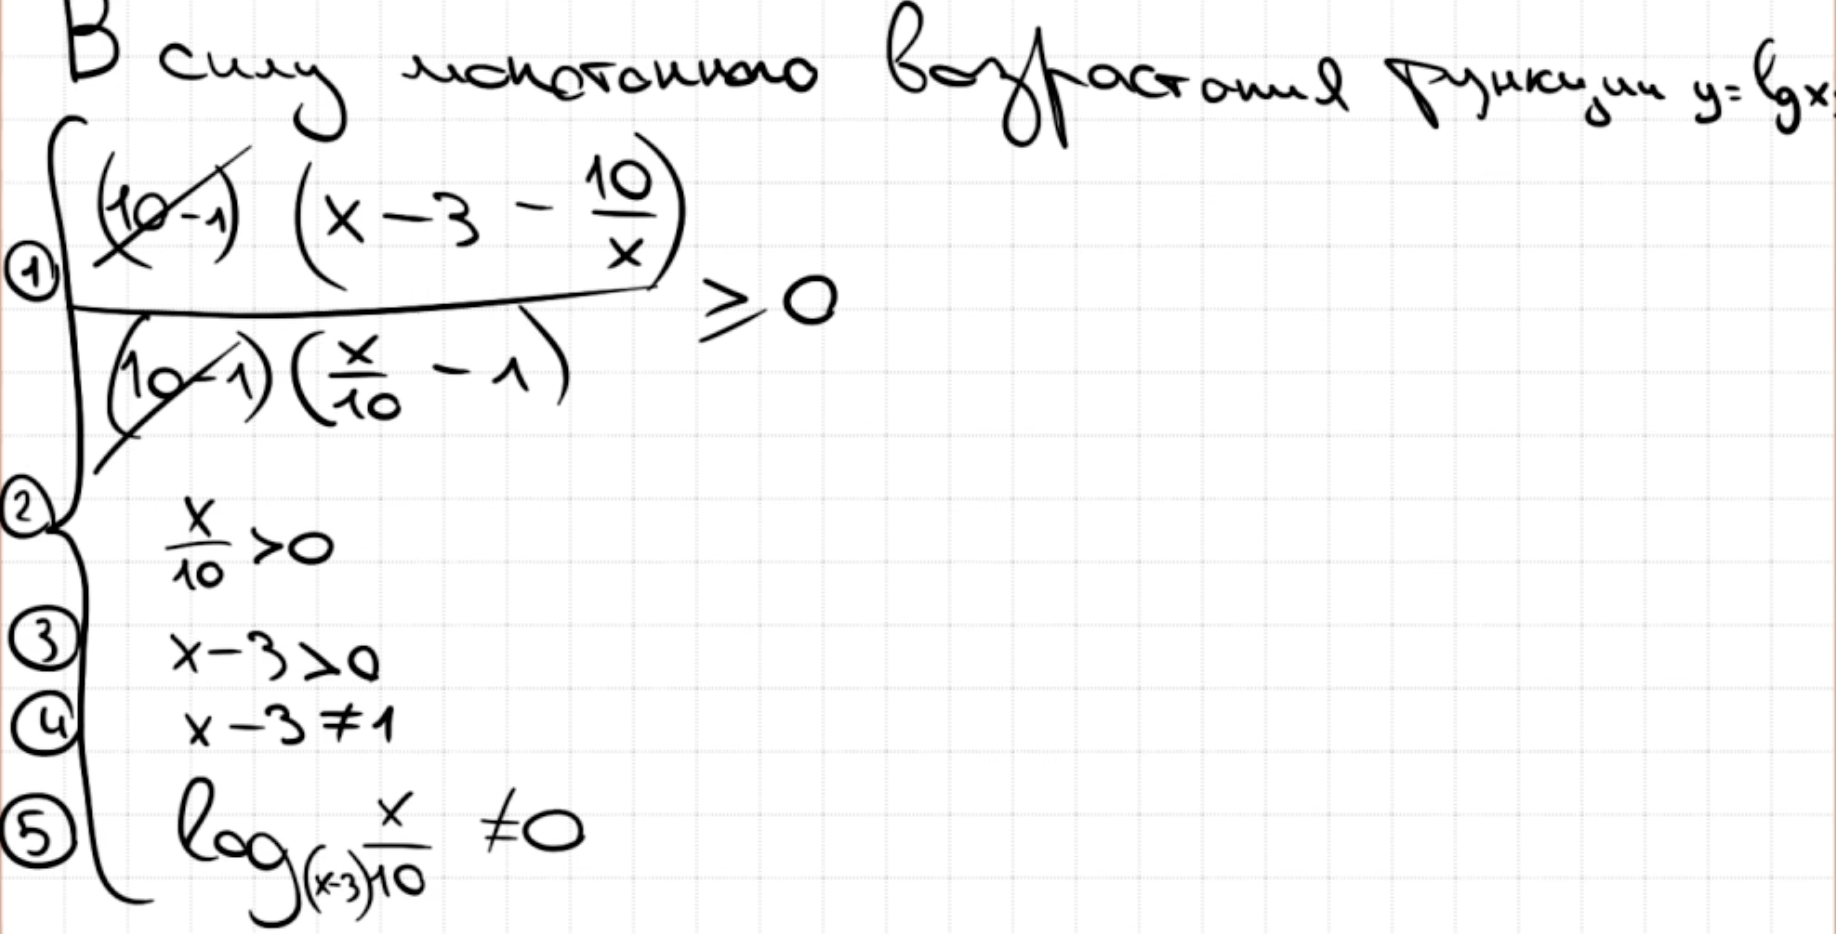 В силу монотонного возрастания функции y=lgx:
① (10-1) (x-3 - 10/x) / (10-1) (x/10 - 1) ⩾ 0
② x/10 >0
③ x-3>0
④ x-3≠1
⑤ log_(x-3) x/10 ≠0